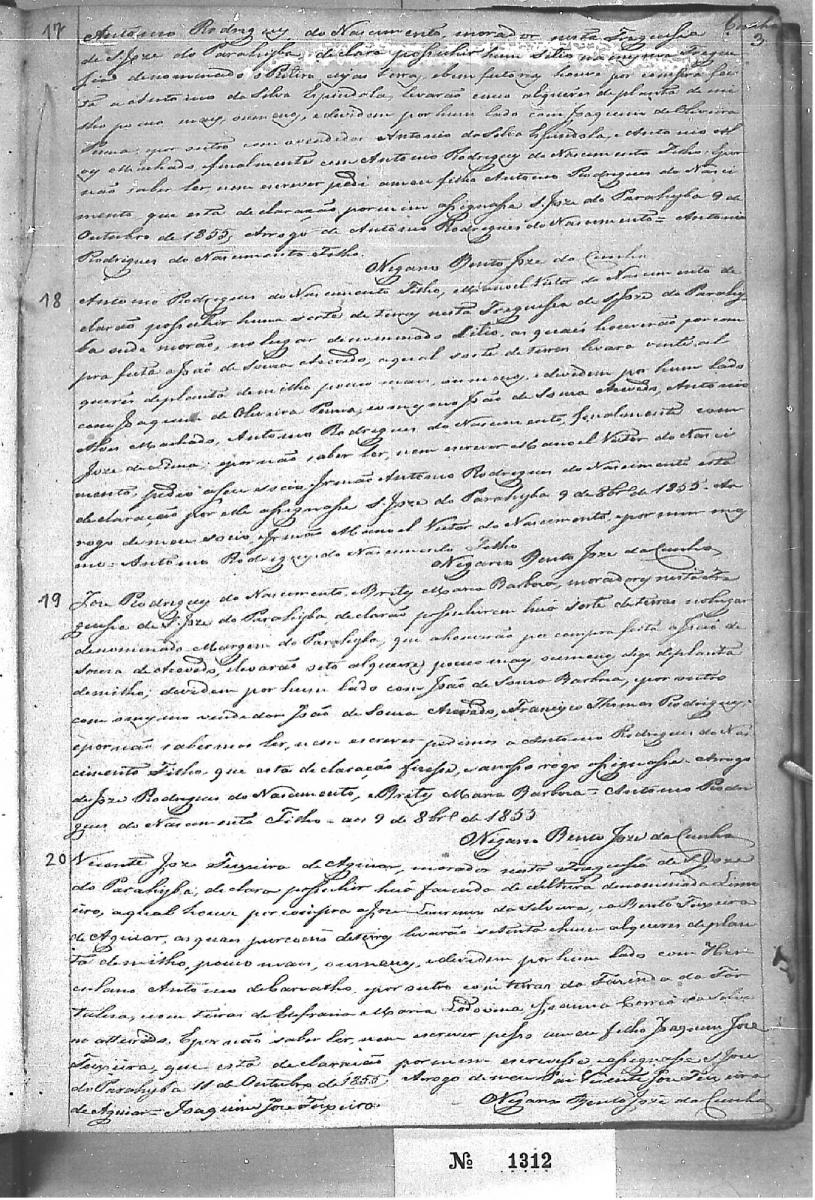 Cunha
3
17
Antonio Rodrigues do Nascimento, morador nesta Freguesia
de S. Joze do Parahyba, declara possuhir hum Sitio na mesma Fregue
sia denominado o Retiro, cujas terras, e bemfeitorias houve por compra fei
ta a Antonio da Silva Espindola, levarão cinco alqueires de planta de mi
lho pouco mais, ou menos, e dividem por hum lado com Joaquim de Oliveira
Penna; por outro com o vendedor Antonio da Silva Espindola, e Antonio Al
vez Machado, e finalmente com Antonio Rodrigues do Nascimento Filho: E por
não saber ler, nem escrever pedi a meu filho Antonio Rodrigues do Nasci
mento, que esta declaração por mim assignasse S. Joze do Parahyba 9 de
Outubro de 1855, Arrogo de Antonio Rodrigues do Nascimento = Antonio
Rodrigues do Nascimento Filho.
O Vigario Bento Joze da Cunha
18
Antonio Rodrigues do Nascimento Filho, e Manoel Victor do Nascimento de
clarão possuhir huma sorte de terras nesta Freguesia de S. Joze do Parahy
ba onde morão, no lugar denominado Sitio, as quais houverão por com
pra feita a João de Souza Azevedo, a qual sorte de terras levará vinte al
queires de planta de milho pouco mais, ou menos, e dividem por hum lado
com Joaquim de Oliveira Penna, e o mesmo João de Souza Azevedo, Antonio
Alves Machado, Antonio Rodrigues do Nascimento, finalmente com
Joze de : e por não saber ler, nem escrever Manoel Victor do Nasci
mento, pedio a seu socio, e Irmão Antonio Rodrigues do Nascimento esta
declaração por elle assignasse S. Joze do Parahyba 9 de 8brº de 1855. Ar
rogo de meu socio, e Irmão Manoel Victor do Nascimento, e por mim mes
mo = Antonio Rodrigues do Nascimento Filho
O Vigario Bento Joze da Cunha
19
Joze Rodrigues do Nascimento, e Brites Maria Barboza, moradores nesta Fre
guesia de S. Joze do Parahyba, declarão possuhirem huã sorte de terras no lugar
denominado Margem do Parahyba, que a houverão por compra feita a João de
Souza de Azevedo, e levarão sete alqueires pouco mais, ou menos digo de planta
de milho; dividem por hum lado com João de Souza Barboza, e por outro
com o mesmo vendedor João de Souza Azevedo, e Francisco Thomas Rodrigues,
e por não sabermos ler, nem escrever pedimos a Antonio Rodrigues do Nas
cimento Filho, que esta declaração fizesse, e a nosso rogo assignasse. Arrogo
de Joze Rodrigues do Nascimento, e Brites Maria Barboza = Antonio Rodri
gues do Nascimento Filho = aos 9 de 8brº de 1855
O Vigario Bento Joze da Cunha
20
Vicente Joze Teixeira de Aguiar, morador nesta Freguesia de S. Joze
do Parahyba, declara possuhir huã fazenda de cultura denominada Limo
eiro, a qual houve por compra a Joze Lourenço da Silveira, e a Bento Teixeira
de Aguiar, as quais porcoens de terras levarão setenta e hum alqueires de plan
ta de milho, pouco mais, ou menos, e dividem por hum lado com Her
culano Antonio de Carvalho, por outro com terras da Fazenda da For
taleza, e com terras de Eufrazia Maria Ludovina, Joanna Corrêa da Silva
no alterado. E por não saber ler, nem escrever pesso a meu filho Joaquim Joze
Teixeira, que esta declaração por mim escrevesse e assignasse. S. Joze
do Parahyba 11 de Outubro de 1855 Arrogo de meu Pai Vicente Joze Teixeira
de Aguiar = Joaquim Joze Teixeira.
O Vigario Bento Joze da Cunha
Nº 1312